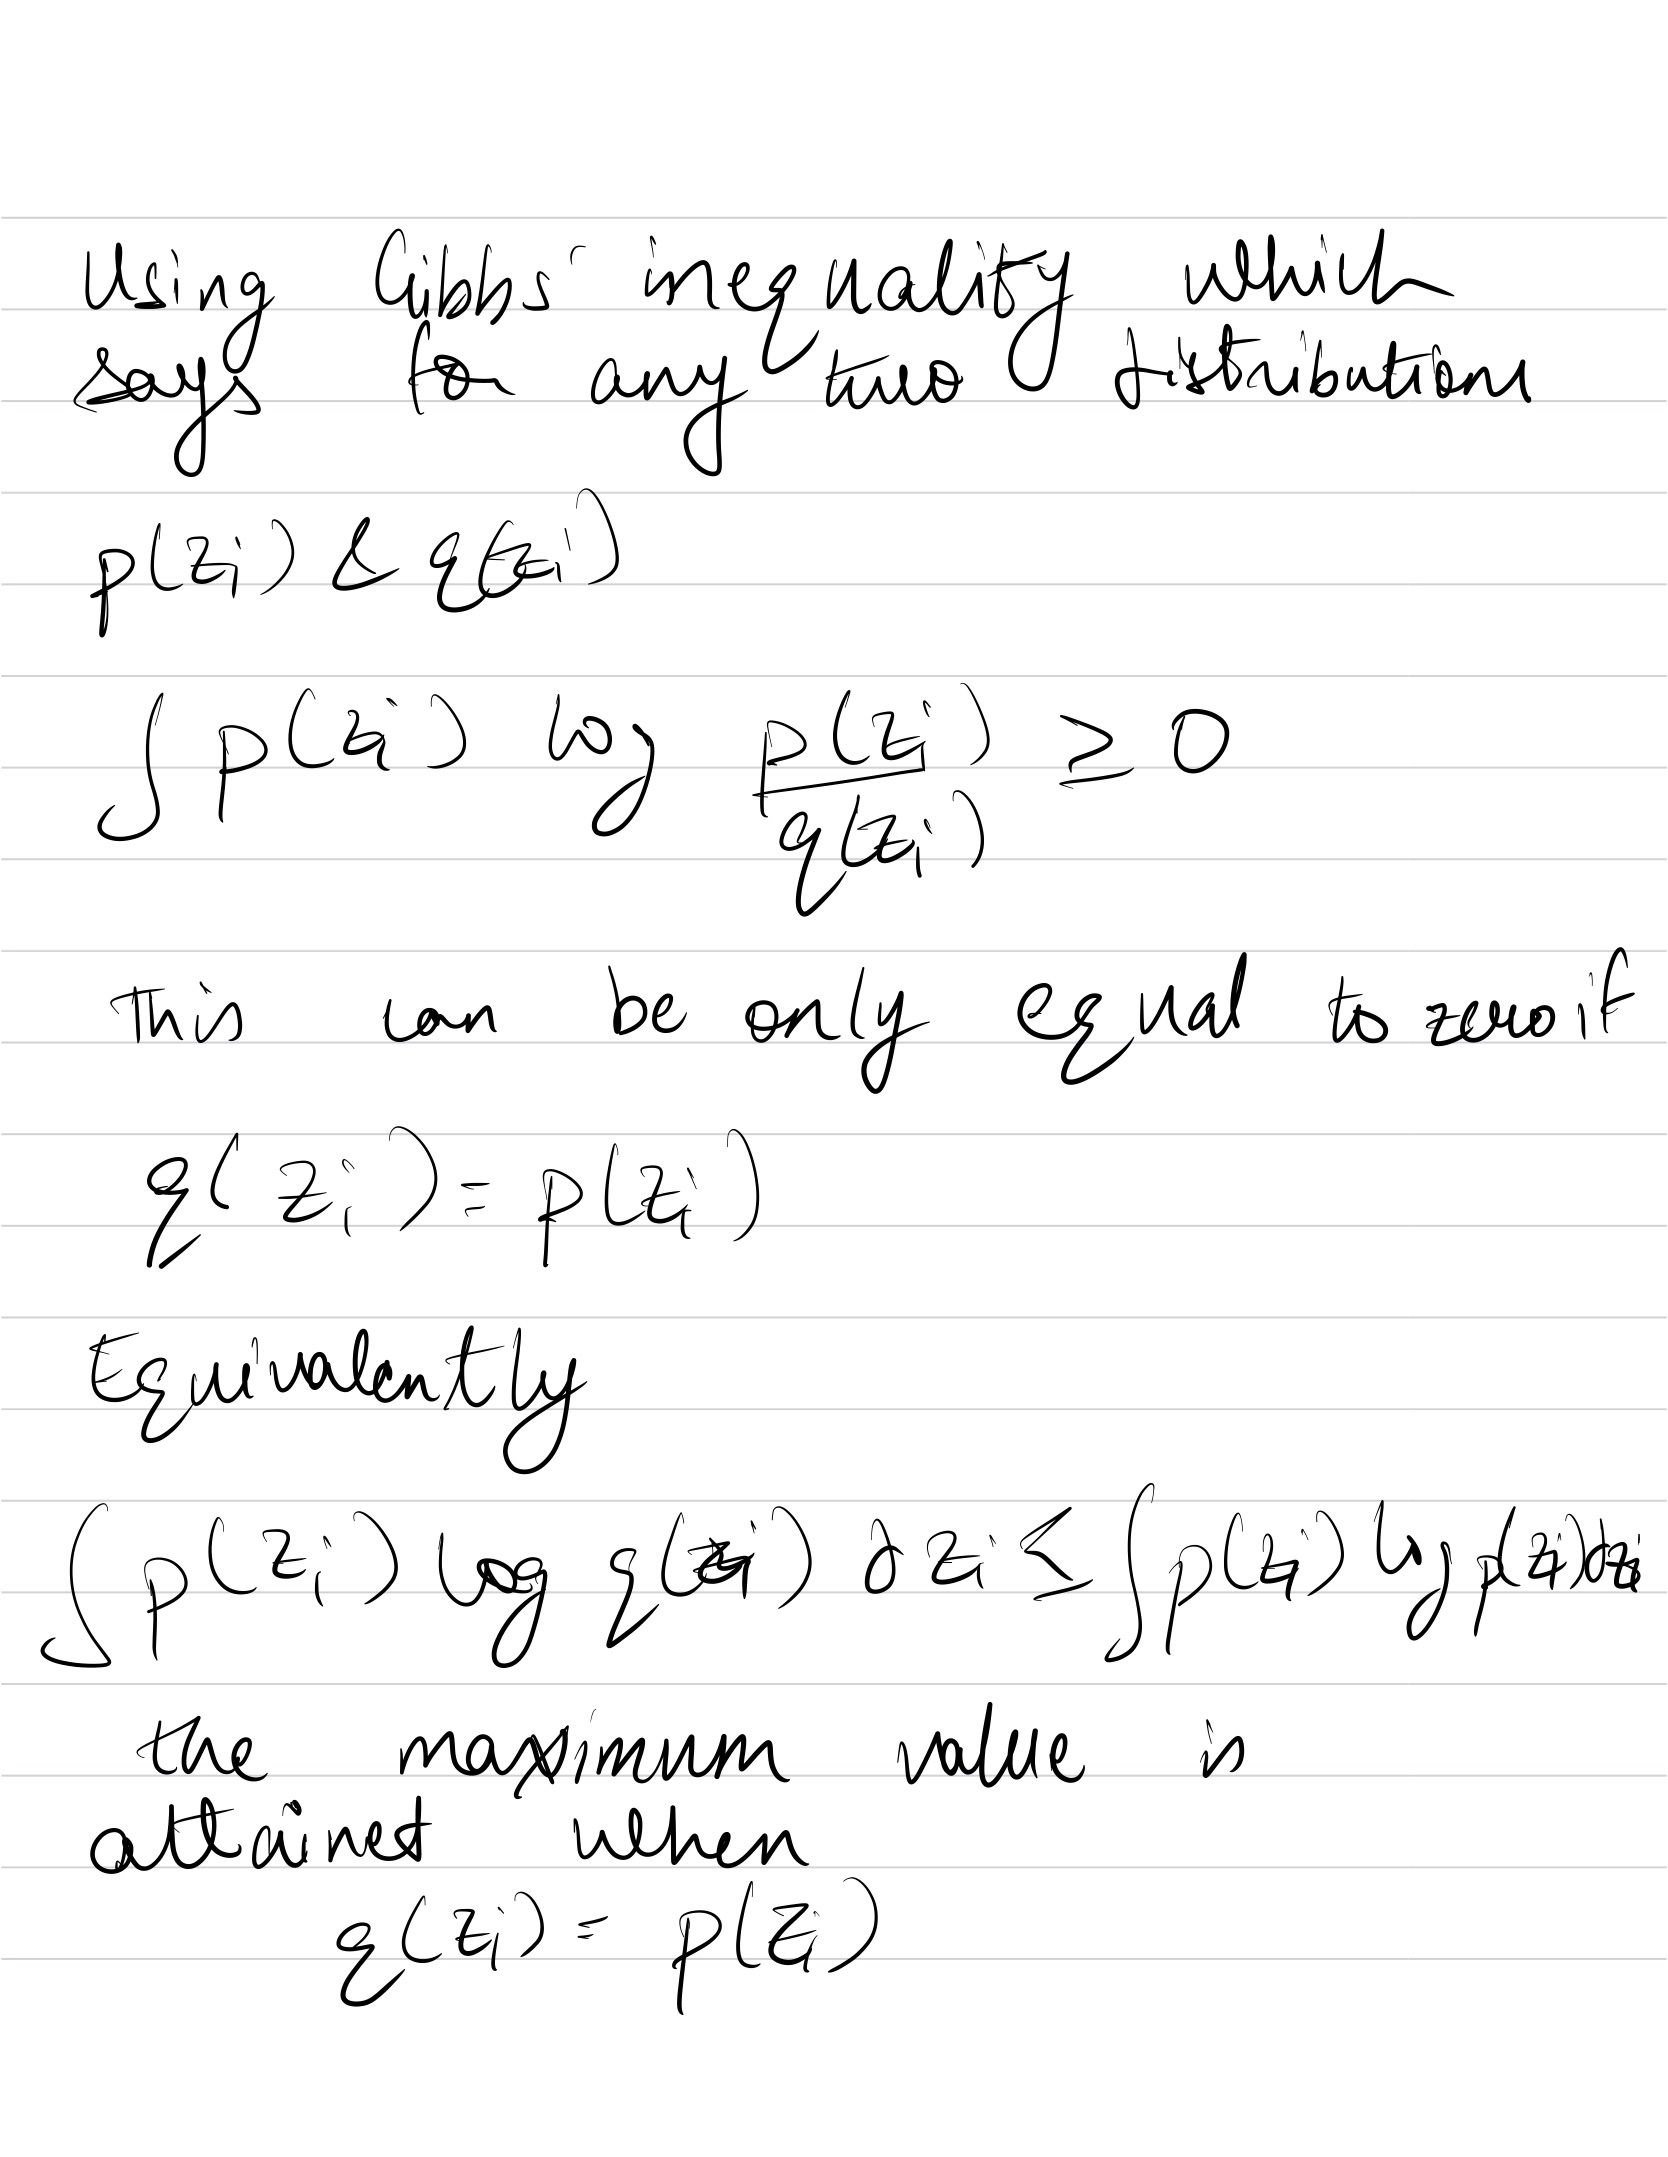 Using Gibbs' inequality which
says for any two distributions
p(zᵢ) & q(zᵢ)
∫ p(zᵢ) log p(zᵢ)/q(zᵢ) ≥ 0
This can be only equal to zero if
q(zᵢ) = p(zᵢ)
Equivalently
∫ p(zᵢ) log q(zᵢ) dzᵢ ≤ ∫ p(zᵢ) log p(zᵢ) dzᵢ
the maximum value is
attained when
q(zᵢ) = p(zᵢ)